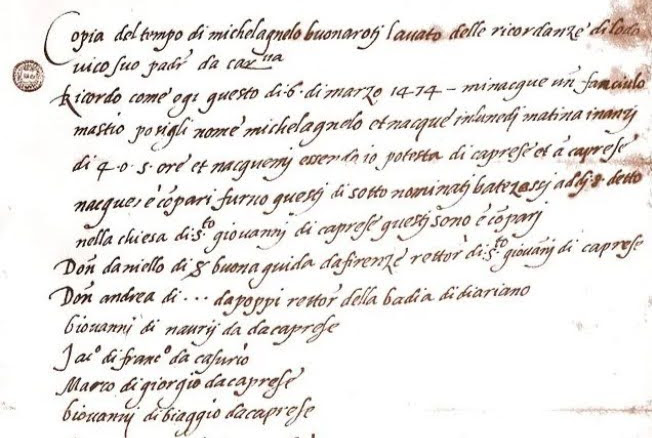 Copia del tempo di michelagnelo buonarotj lavato delle ricordanze di lodo
vico suo padre da car.na
Ricordo come ogi questo di .6. di marzo 1474 - minacque un fanciulo
mastio posigli nome michelagnelo et nacque inlunedj matina inanzj
di .4.o.5. ore et nacquemj essendo io potesta di caprese et a caprese
nacque: e co͂parj furno questj di sotto nominatj batezossj addj .8. detto
nella chiesa di .s.to giovannj di caprese questj sono e co͂parj
Don͂ daniello di s buonaguida dafirenze rettor͂ di .s.to giovan͂j di caprese
Don͂ andrea di ... dapoppi rettor͂ della badia didiariano
Giovannj di naurij da dacaprese
Jac.o di franc.o da casurio
Marco di giorgio dacaprese
Giovannj dibiaggio dacaprese